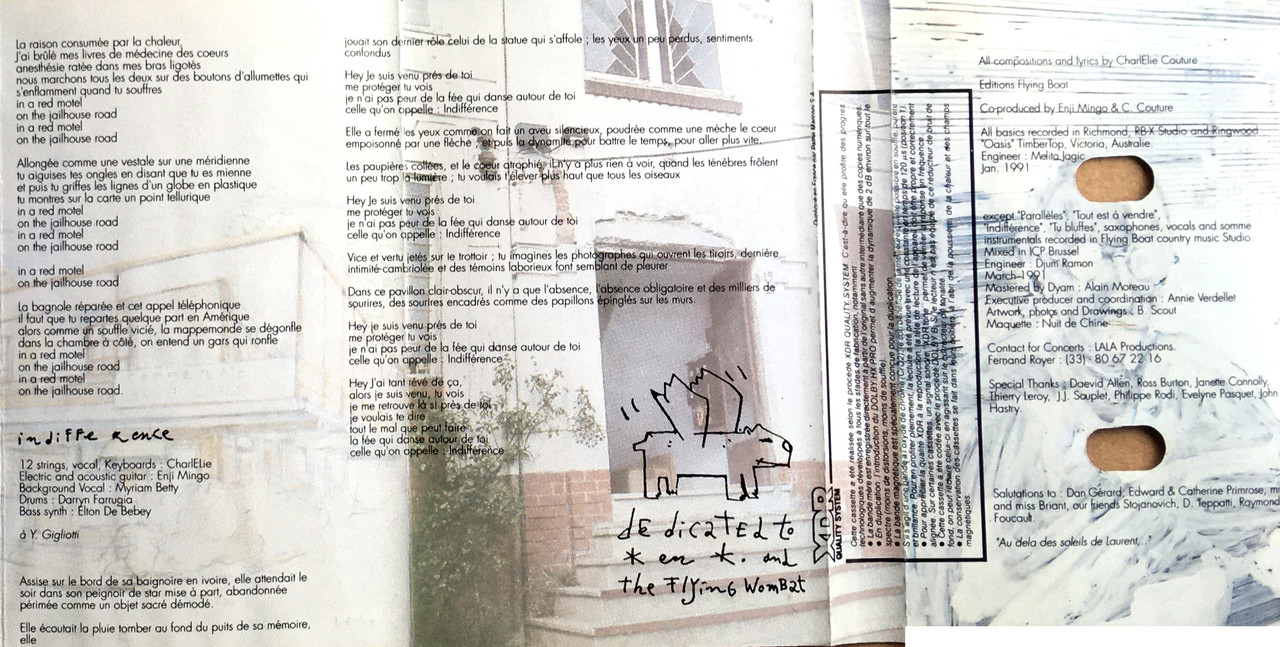 La raison consumée par la chaleur,
j'ai brûlé mes livres de médecine des coeurs
anesthésie ratée dans mes bras ligotés
nous marchons tous les deux sur des boutons d'allumettes qui
s'enflamment quand tu souffres
in a red motel
on the jailhouse road
in a red motel
on the jailhouse road
Allongée comme une vestale sur une méridienne
tu aiguises tes ongles en disant que tu es mienne
et puis tu griffes les lignes d'un globe en plastique
tu montres sur la carte un point tellurique
in a red motel
on the jailhouse road
in a red motel
on the jailhouse road
in a red motel
on the jailhouse road
La bagnole réparée et cet appel téléphonique
il faut que tu repartes quelque part en Amérique
alors comme un souffle vicié, la mappemonde se dégonfle
dans la chambre à côté, on entend un gars qui ronfle
in a red motel
on the jailhouse road
in a red motel
on the jailhouse road.
indifference
12 strings, vocal, Keyboards : CharlElie
Electric and acoustic guitar : Enji Mingo
Background Vocal : Myriam Betty
Drums : Darryn Farrugia
Bass synth : Elton De Bebey
à Y. Gigliotti
Assise sur le bord de sa baignoire en ivoire, elle attendait le
soir dans son peignoir de star mise à part, abandonnée
périmée comme un objet sacré démodé.
Elle écoutait la pluie tomber au fond du puits de sa mémoire,
elle
jouait son dernier rôle celui de la statue qui s'affole ; les yeux un peu perdus, sentiments
confondus
Hey Je suis venu prés de toi
me protéger tu vois
je n'ai pas peur de la fée qui danse autour de toi
celle qu'on appelle : Indifférence
Elle a fermé les yeux comme on fait un aveu silencieux, poudrée comme une mèche le coeur
empoisonné par une flêche et puis la dynamite pour battre le temps, pour aller plus vite.
Les paupières collées, et le coeur atrophié, il n'y a plus rien à voir, quand les ténèbres frôlent
un peu trop la lumière ; tu voulais t'élever plus haut que tous les oiseaux
Hey Je suis venu prés de toi
me protéger tu vois
je n'ai pas peur de la fée qui danse autour de toi
celle qu'on appelle : Indifférence
Vice et vertu jetés sur le trottoir ; tu imagines les photographes qui ouvrent les tiroirs, dernière
intimité cambriolée et des témoins laborieux font semblant de pleurer
Dans ce pavillon clair-obscur, il n'y a que l'absence, l'absence obligatoire et des milliers de
sourires, des sourires encadrés comme des papillons épinglés sur les murs.
Hey je suis venu prés de toi
me protéger tu vois
je n'ai pas peur de la fée qui danse autour de toi
celle qu'on appelle : Indifférence
Hey J'ai tant rêvé de ça,
alors je suis venu, tu vois
je me retrouve là si près de toi
je voulais te dire
tout le mal que peut faire
la fée qui danse autour de toi
celle qu'on appelle : Indifférence
dedicated to
* en *. and
the Flying Wombat
XDR
QUALITY SYSTEM
Cette cassette a été réalisée selon le procédé XDR QUALITY SYSTEM. C'est-à-dire qu'elle profite des progrès
technologiques développés à tous les stades de fabrication, notamment :
All compositions and lyrics by CharlElie Couture
Editions Flying Boat
Co-produced by Enji Mingo & C. Couture
All basics recorded in Richmond, RB-X Studio and Ringwood
"Oasis" TimberTop, Victoria, Australie.
Engineer : Melita Jagic
Jan. 1991
except "Parallèles", "Tout est à vendre",
"Indifférence", "Tu bluffes", saxophones, vocals and somme
instrumentals recorded in Flying Boat country music Studio.
Mixed in ICP Brussel
Engineer : Djum Ramon
March 1991
Mastered by Dyam : Alain Moreau
Executive producer and coordination : Annie Verdellet
Artwork, photos and Drawings : B. Scout
Maquette : Nuit de Chine
Contact for Concerts : LALA Productions.
Fernand Royer : (33) 80 67 22 16
Special Thanks : Daevid Allen, Ross Burton, Janette Connolly,
Thierry Leroy, J.J. Souplet, Philippe Rodi, Evelyne Pasquet, John
Hastry.
Salutations to : Dan Gérard, Edward & Catherine Primrose,
and miss Briant, our friends Stojanovich, D. Teppatti, Raymond
Foucault.
"Au dela des soleils de Laurent,.."